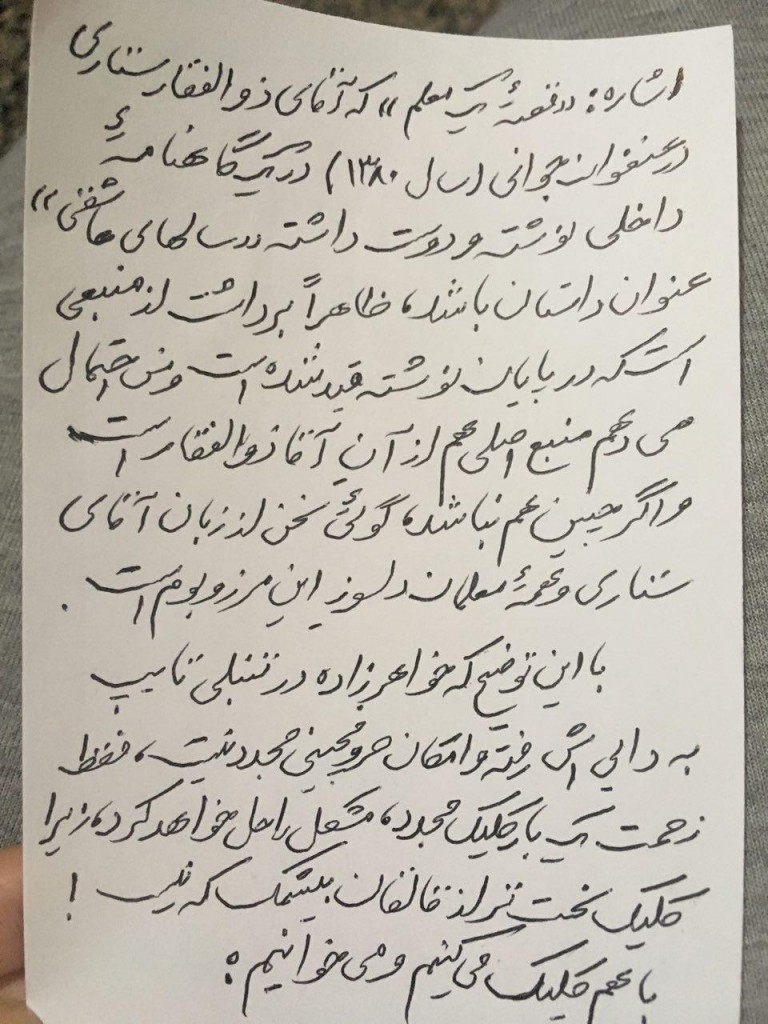 اشاره: «قصهٔ یک معلم» که آقای ذوالفقار ستاری
در عنفوان جوانی (سال ۱۳۸۰) در یک گاهنامهٔ
داخلی نوشته و دوست داشته «سالهای عاشقی»
عنوان داستان باشد، ظاهراً برداشت از منبعی
است که در پایان نوشته قید شده است و من احتمال
می دهم منبع اصلی هم از آنِ آقا ذوالفقار است
و اگر چنین هم نباشد، گوئی سخن از زبان آقای
ستاری و همهٔ معلمان دلسوز این مرز و بوم است.
با این توضیح که خواهرزاده در تنبلی تایپ
به دایی اش رفته و امکان حروفچینی مجدد نیست، فقط
زحمت یک بار کلیک مجدد، مشکل را حل خواهد کرد، زیرا
کلیک سخت تر از قالفان بیشمک که نیست!
با هم کلیک می کنیم و می خوانیم: